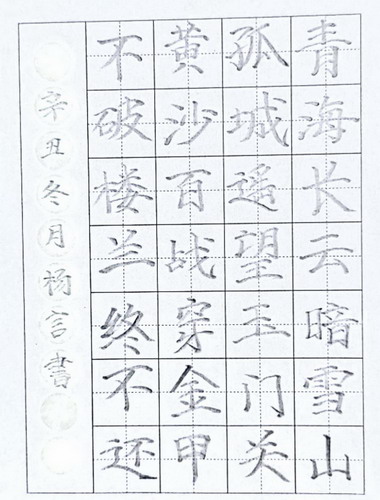 青海长云暗雪山
孤城遥望玉门关
黄沙百战穿金甲
不破楼兰终不还
辛丑冬月杨言书